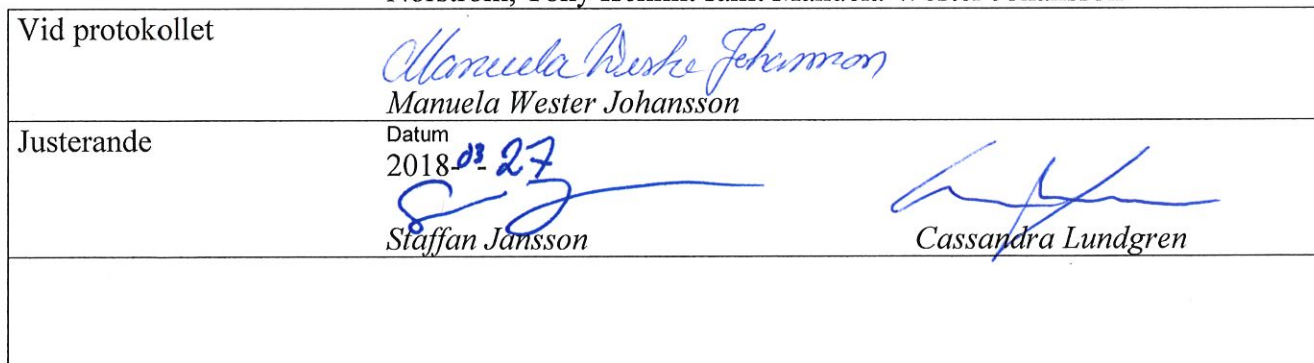 Vid protokollet
Manuela Wester Johansson
Manuela Wester Johansson
Justerande
Datum
2018-03-27
Staffan Jansson Cassandra Lundgren